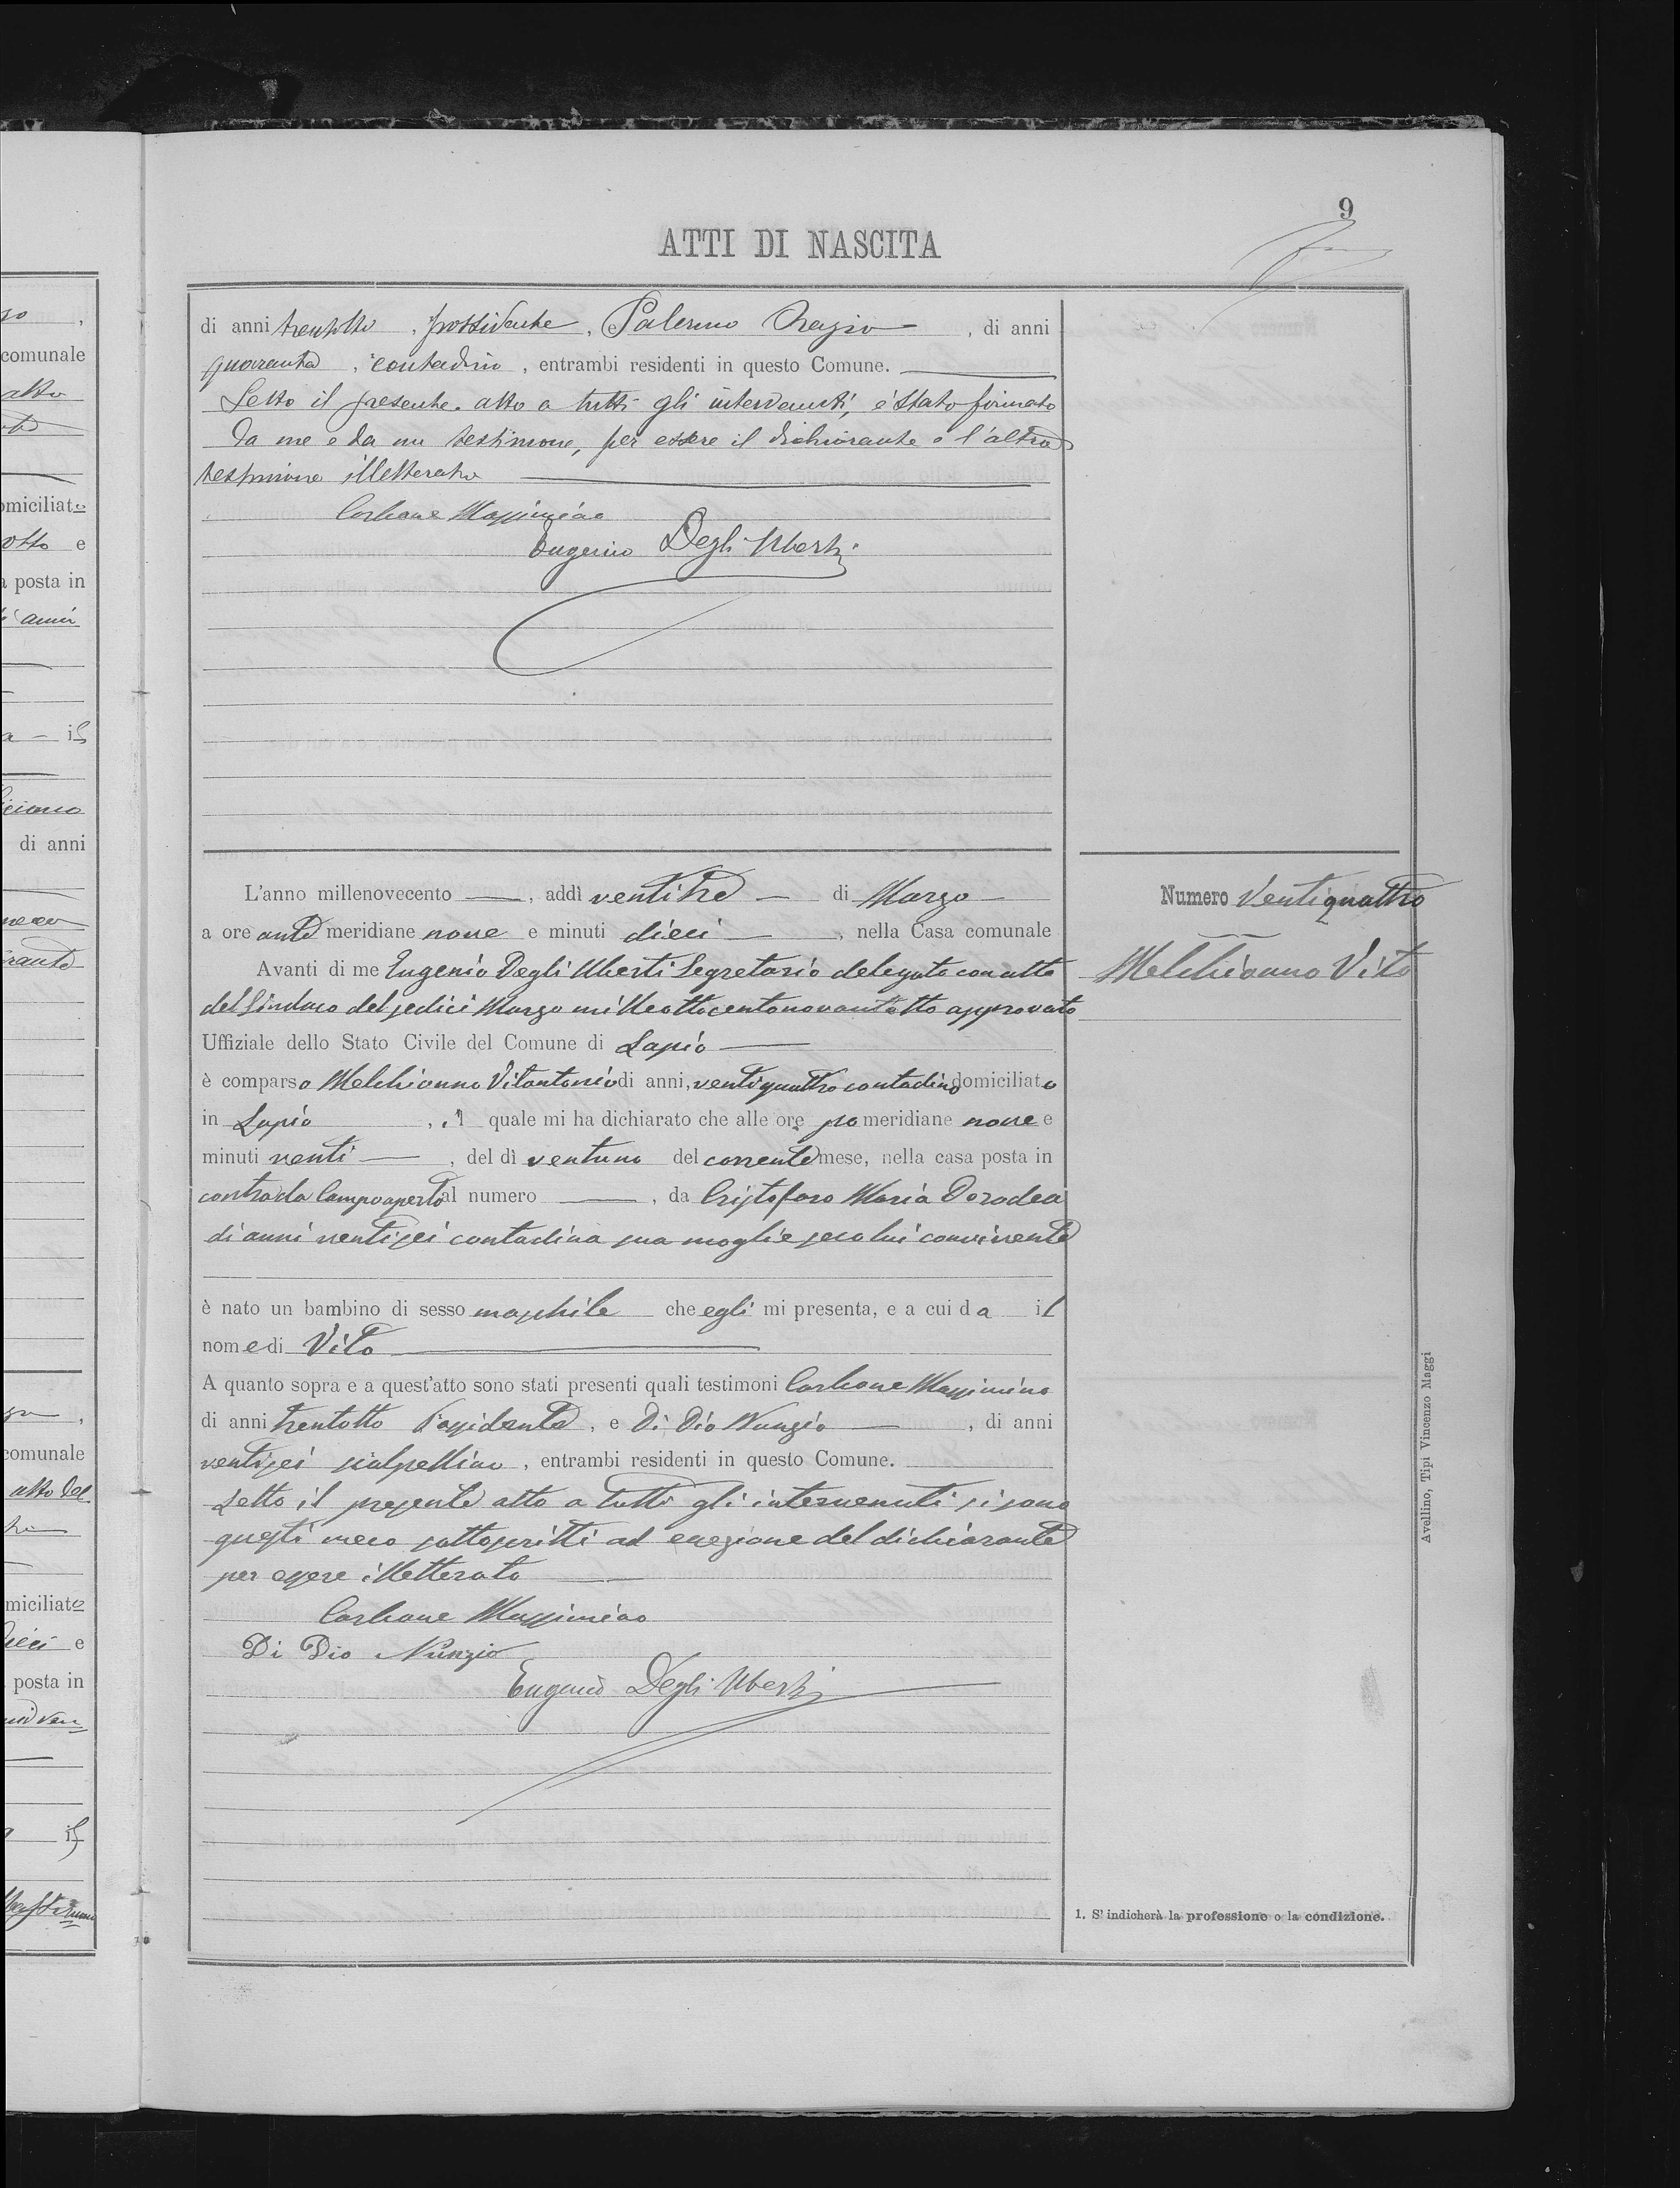 9
ATTI DI NASCITA
di anni trentotto, possidente, e Palermo Orazio, di anni
quaranta, contadino, entrambi residenti in questo Comune.
Letto il presente atto a tutti gli intervenuti, è stato firmato
da me e da un testimone, per essere il dichiarante e l'altro
testimone illetterato
Carbone Massimino
Eugenio Degli Uberti
L'anno millenovecento —, addì ventitre — di Marzo —
a ore ante meridiane nove e minuti dieci —, nella Casa comunale
Avanti di me Eugenio Degli Uberti Segretario delegato con atto
del Sindaco del sedici Marzo mille ottocentonovantotto approvato
Uffiziale dello Stato Civile del Comune di Lapio —
è comparso Melchionno Vitantonio di anni, ventiquattro contadino domiciliato
in Lapio, il quale mi ha dichiarato che alle ore po meridiane nove e
minuti venti —, del dì ventuno del corrente mese, nella casa posta in
contrada Campoaperto al numero —, da Cristofaro Maria Doradea
di anni ventisei contadina sua moglie seco lui convivente
è nato un bambino di sesso maschile che egli mi presenta, e a cui da il
nome di Vito —
A quanto sopra e a quest'atto sono stati presenti quali testimoni Carbone Massimino
di anni trentotto Possidente, e Di Dio Nunzio —, di anni
ventisei scalpellino, entrambi residenti in questo Comune.
Letto il presente atto a tutti gli intervenuti si sono
questi meco sottoscritti ad eccezione del dichiarante
per essere illetterato —
Carbone Massimino
Di Dio Nunzio
Eugenio Degli Uberti
Numero Ventiquattro
Melchionno Vito
1. S' indicherà la professione o la condizione.
Avellino, Tipi Vincenzo Maggi
comunale
atto
omiciliato
otto e
a posta in
anni
il
di anni
comunale
atto del
miciliato
dieci e
posta in
il